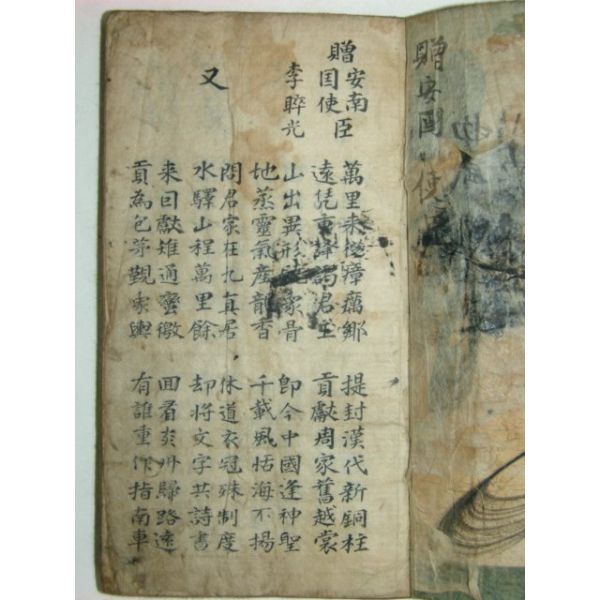 贈安南
囯使臣
李睟光
萬里来從瘴癘鄉 提封漢代新銅柱
遠凭重譯謁君王 貢獻周家舊越裳
山出異形象骨 即今中國逢神聖
地蒸靈氣産龍香 千載風恬海不揚
又
問君家在九真居 休道衣冠殊制度
水驛山程萬里餘 却將文字共詩書
来囙獻雉通蠻徼 囬看炎州歸路遠
貢為包茅覲象輿 有誰重作指南車
贈安国使